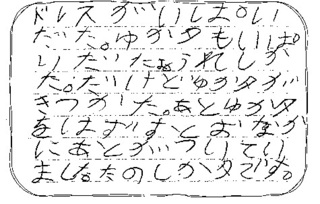 ドレスがいしぱい
だた。ゆかタもいぱ
いだたよ。うれしか
た。だけどゆかタが
きつかた。あとゆかタ
をはずすとおなか
にあとがついてい
ました。たのしかタです。